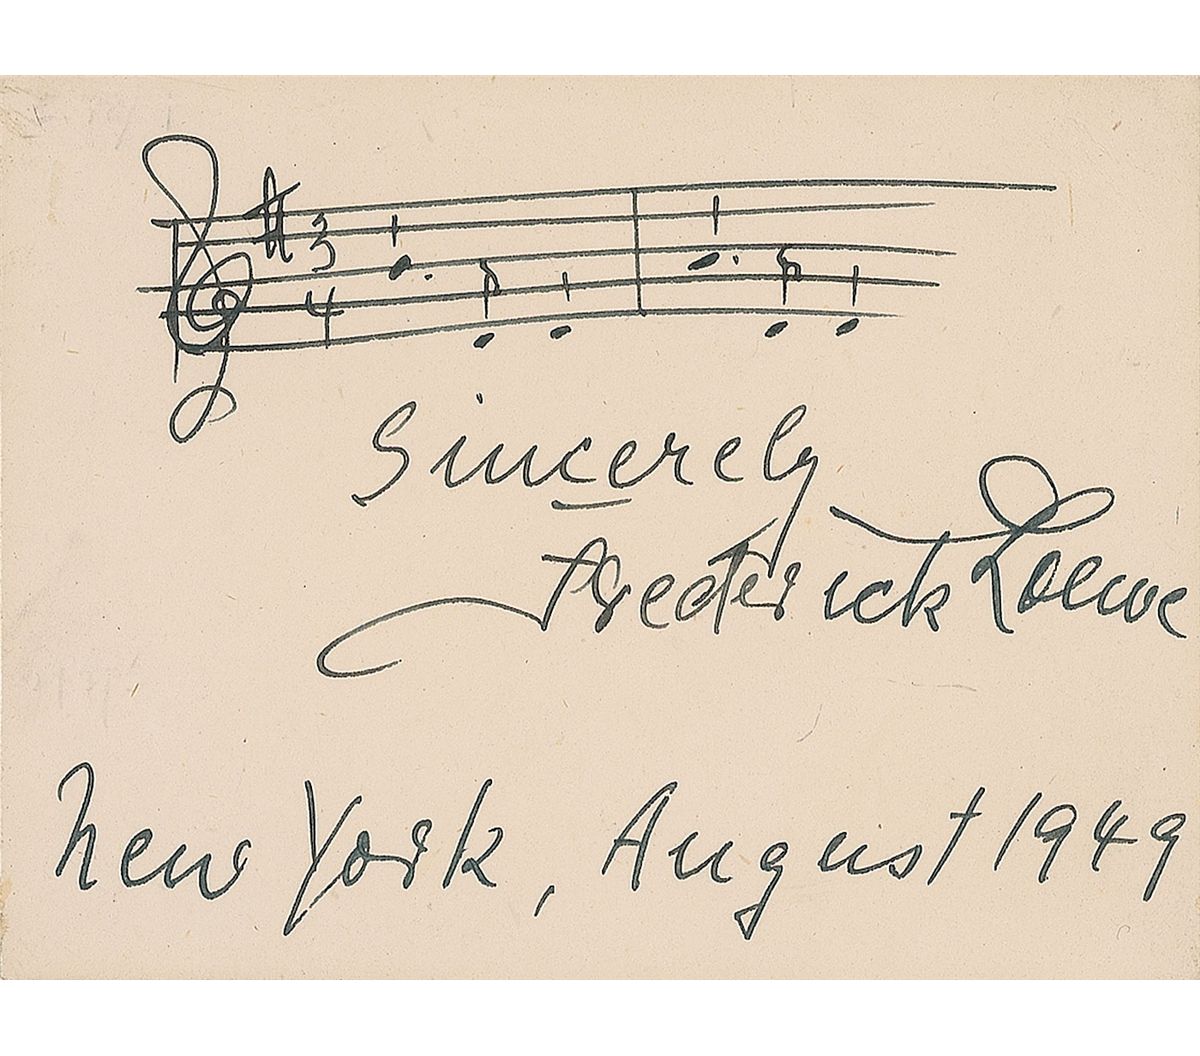 3
4
Sincerely
Frederick Loewe
New York, August 1949